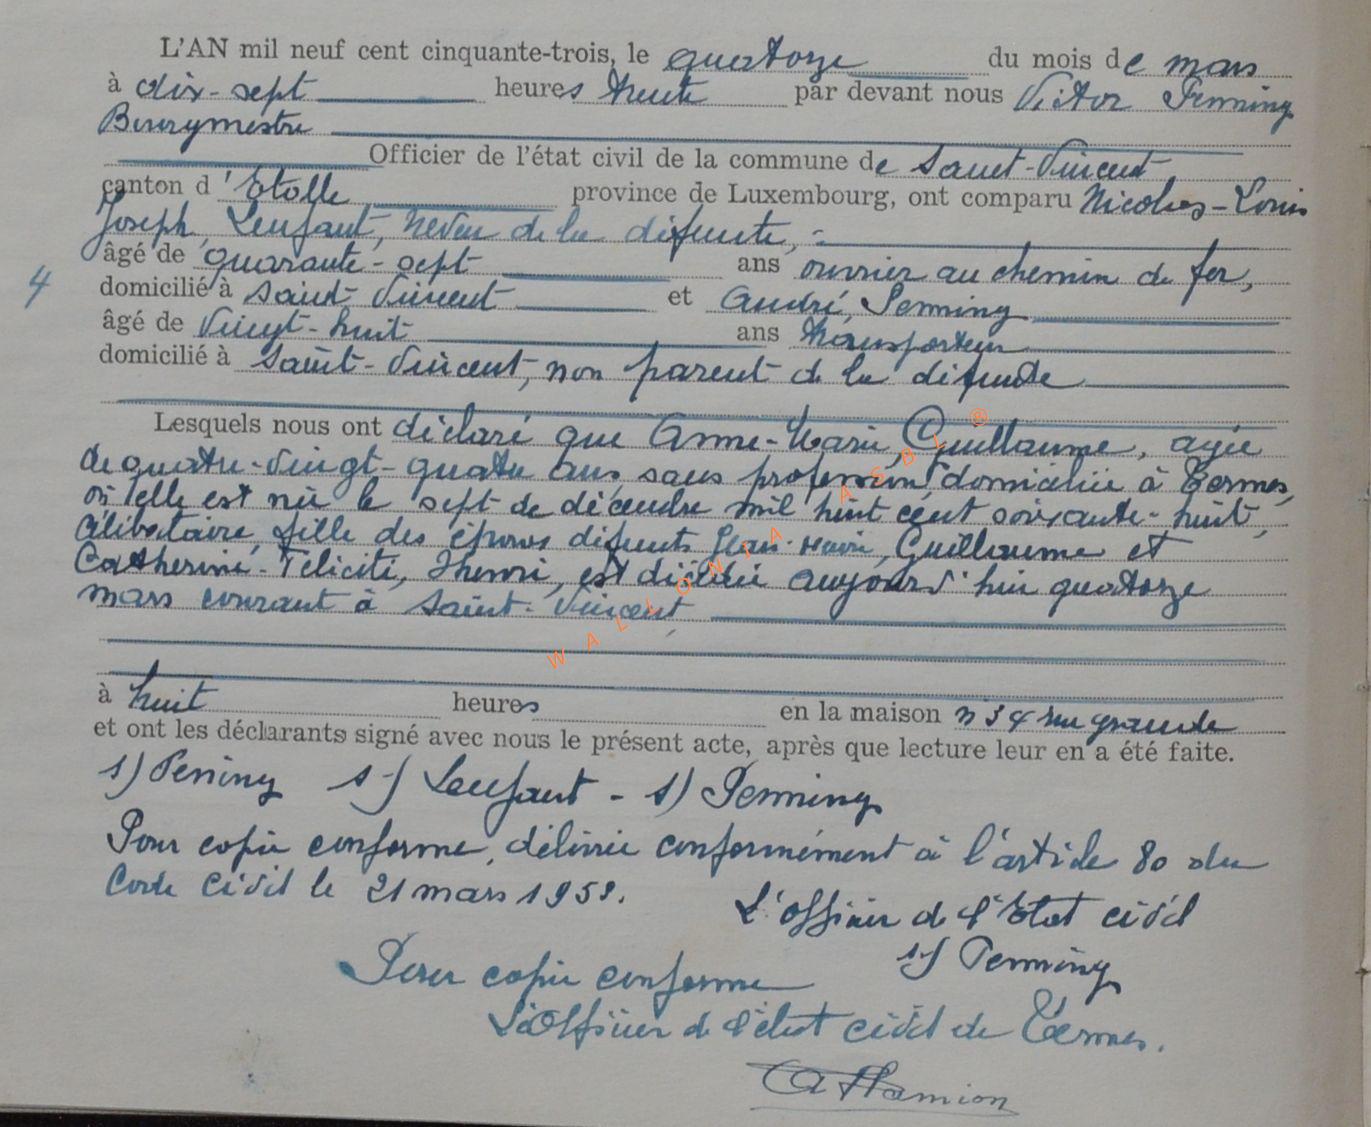 L'AN mil neuf cent cinquante-trois, le quatorze du mois de mars
à dix-sept heures trente par devant nous Victor Penning
Bourgmestre
Officier de l'état civil de la commune de Saint-Vincent
canton d'Etalle province de Luxembourg, ont comparu Nicolas-Louis
Joseph, Lenfant, neveu de la défunte,
âgé de quarante-sept ans ouvrier au chemin de fer,
4 domicilié à Saint-Vincent et André, Penning
âgé de vingt-huit ans transporteur
domicilié à Saint-Vincent, non parent de la défunte
Lesquels nous ont déclaré que Anne-Marie, Guillaume, agée
de quatre-vingt-quatre ans, sans profession, domiciliée à Termes,
où elle est née le sept de décembre mil huit cent soixante-huit,
célibataire, fille des époux défunts Jean-Marie, Guillaume et
Catherine-Félicité, Thenri, est décédée aujourd'hui quatorze
mars courant à Saint-Vincent
à huit heures en la maison n° 34 rue grande
et ont les déclarants signé avec nous le présent acte, après que lecture leur en a été faite.
s) Penning s-) Lenfant - s) Penning
Pour copie conforme, délivrée conformément à l'article 80 du
Code civil le 21 mars 1953.
L'Officier de l'Etat civil
s-) Penning
Pour copie conforme
L'Officier de l'état civil de Termes.
Hamion
WALLONIA ASBL ®